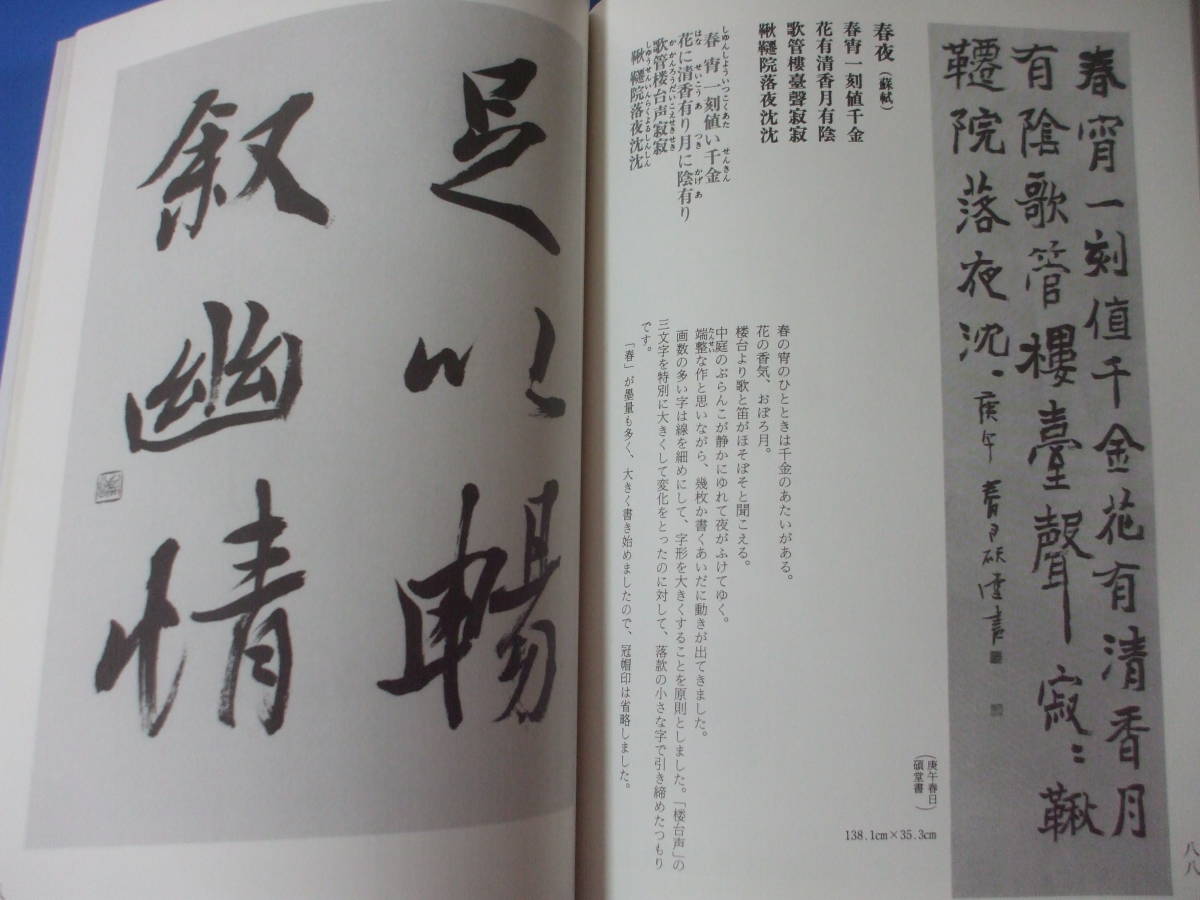 春宵一刻值千金花有清香月
有陰歌管樓臺聲寂〻鞦
韆院落夜沈〻庚午春日碩堂書
春夜（蘇軾）
春宵一刻値千金
花有清香月有陰
歌管樓臺聲寂寂
鞦韆院落夜沈沈
しゅんしょういっこくあたせんきん
春宵一刻値い千金
はなせいこうあつきかげあ
花に清香有り月に陰有り
かかんろうだいこえせきせき
歌管楼台声寂寂
しゅうせんいんらくよるしんしん
鞦韆院落夜沈沈
春の宵のひとときは千金のあたいがある。
花の香気、おぼろ月。
楼台より歌と笛がほそぼそと聞こえる。
中庭のぶらんこが静かにゆれて夜がふけてゆく。
たんせい
端整な作と思いながら、幾枚か書くあいだに動きが出てきました。
画数の多い字は線を細めにして、字形を大きくすることを原則としました。「楼台声」の
三文字を特別に大きくして変化をとったのに対して、落款の小さな字で引き締めたつもり
です。
「春」が墨量も多く、大きく書き始めましたので、冠帽印は省略しました。
（庚午春日
碩堂書）
138.1cm×35.3cm
八八
足以暢
叙幽情